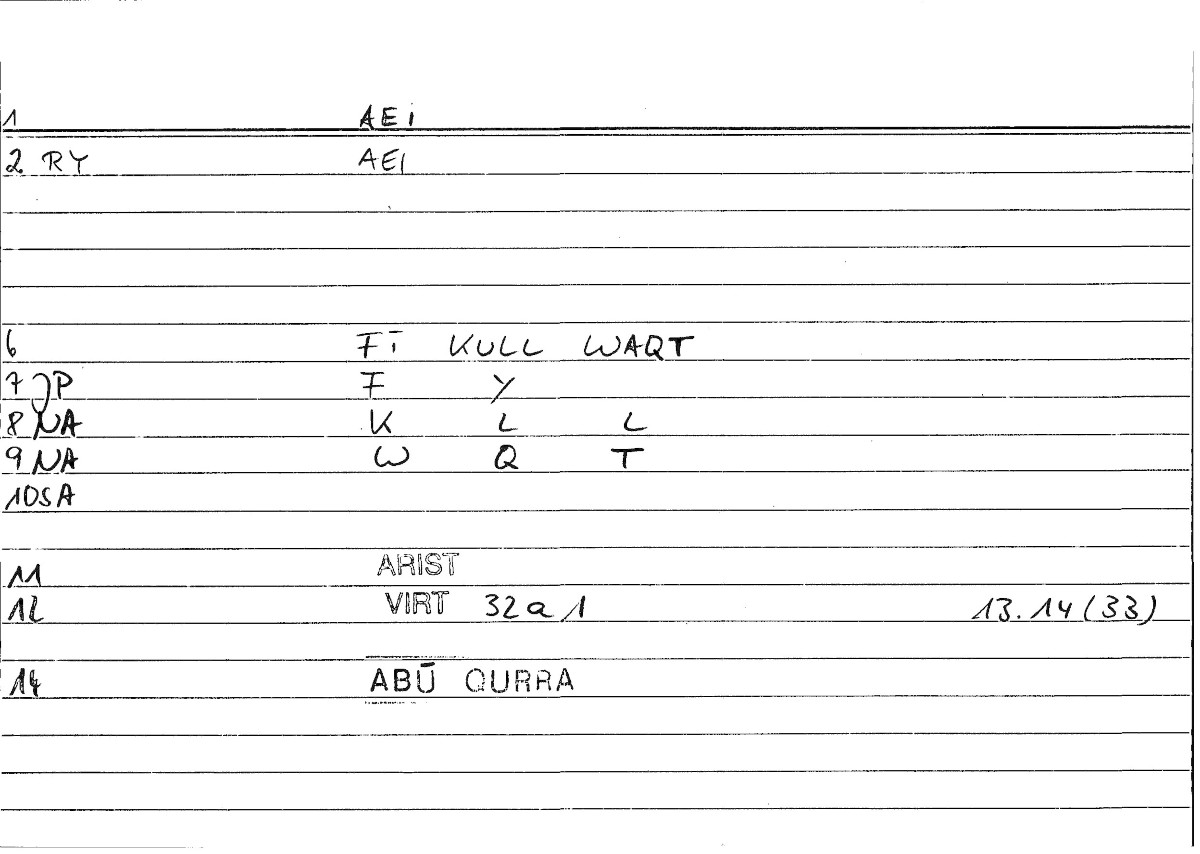 1 AEi
2 RY AEI
6 FĪ KULL WAQT
7 JP F Y
8 NA K L L
9 NA W Q T
10 SA
11 ARIST
12 VIRT 32a1 13.14(33)
14 ABŪ QURRA